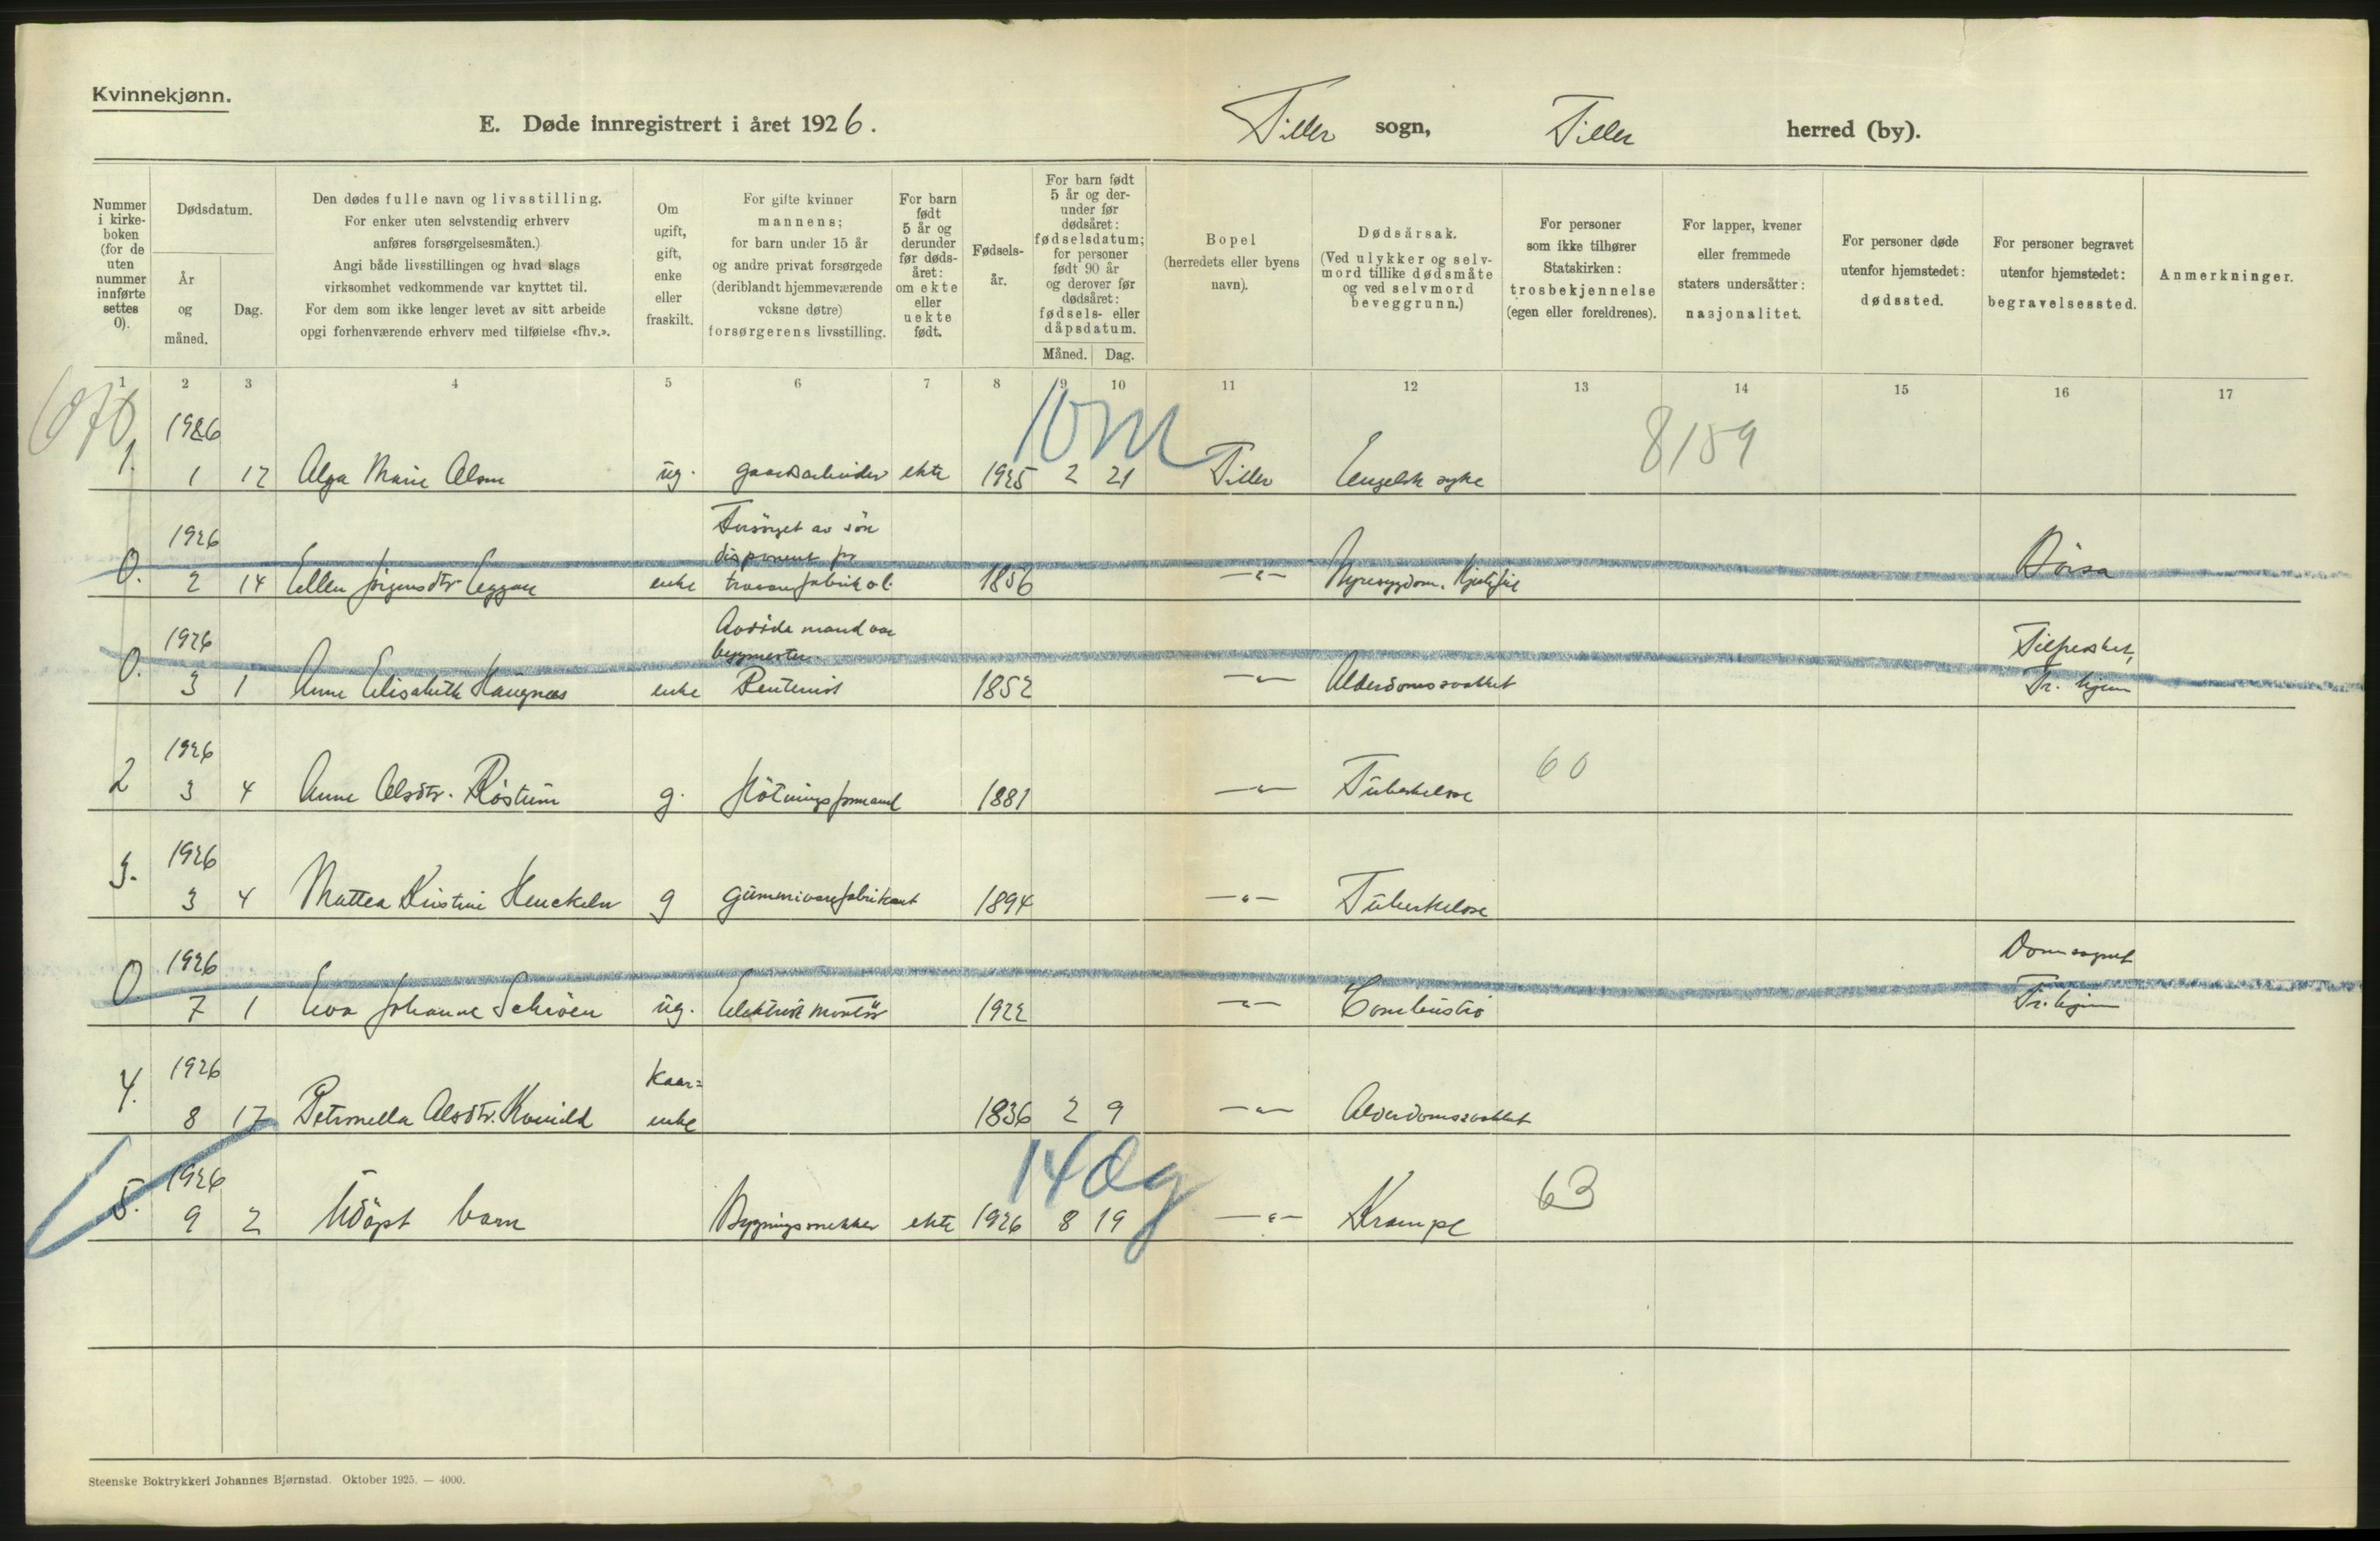 Kvinnekjønn.
E. Døde innregistrert i året 1926. Tiller sogn, Tiller herred (by).
Nummer i kirkeboken (for de uten nummer innførte settes 0).
Dødsdatum.
År og måned.
Dag.
Den dødes fulle navn og livsstilling.
For enker uten selvstendig erhverv
anføres forsørgelsesmåten.)
Angi både livsstillingen og hvad slags
virksomhet vedkommende var knyttet til.
For dem som ikke lenger levet av sitt arbeide
opgi forhenværende erhverv med tilføielse «fhv.».
Om ugift, gift, enke eller fraskilt.
For gifte kvinner
mannens;
for barn under 15 år
og andre privat forsørgede
(deriblandt hjemmeværende
voksne døtre)
forsørgerens livsstilling.
For barn født 5 år og derunder før dødsåret: om ekte eller uekte født.
Fødselsår.
For barn født 5 år og derunder før dødsåret: fødselsdatum; for personer født 90 år og derover før dødsåret: fødsels- eller dåpsdatum.
Måned. Dag.
Bopel
(herredets eller byens
navn).
Dødsårsak.
(Ved ulykker og selvmord tillike dødsmåte og ved selvmord beveggrunn.)
For personer
som ikke tilhører
Statskirken:
trosbekjennelse
(egen eller foreldrenes).
For lapper, kvener
eller fremmede
staters undersåtter:
nasjonalitet.
For personer døde
utenfor hjemstedet:
dødssted.
For personer begravet
utenfor hjemstedet:
begravelsessted.
Anmerkninger.
1 2 3 4 5 6 7 8 9 10 11 12 13 14 15 16 17
10 m
8159
1926
1. 1 12 Alga Marie Olsen ug. gaardsarbeider ekte 1925 2 21 Tiller Engelsk syke
1926 Forsørget av søn
disponent for
0. 2 14 Ellen Jørgensdtr. Eggan enke trævarefabrik o.l. 1856 —„— Nyresygdom. Hjertefeil Börsa
1926 Avdöde mand var
byggmester.
0. 3 1 Anne Elisabeth Haugnæs enke Rentenist 1852 —„— Alderdomssvakhet Tilfredshet, Tr. hjem
1926 60
2 3 4 Anne Olsdtr. Röstum g. formand 1881 —„— Tuberkelose
1926
3. 3 4 Mattea Kristine Henckeln g gummivarefabrikant 1894 —„— Tuberkelose
1926 Domsognet
0 7 1 Eva Johanne Schröen ug. Elektrisk montör 1922 —„— Combustio Tr.hjem
1926 Kaar=
4. 8 17 Petronella Olsdtr. Kvenild enke 1836 2 9 —„— Alderdomssvakhet
14 dg
1926 63
5. 9 2 Udöpt barn Bygningssnekker ekte 1926 8 19 —„— Krampe
Steenske Boktrykkeri Johannes Bjørnstad. Oktober 1925. — 4000.